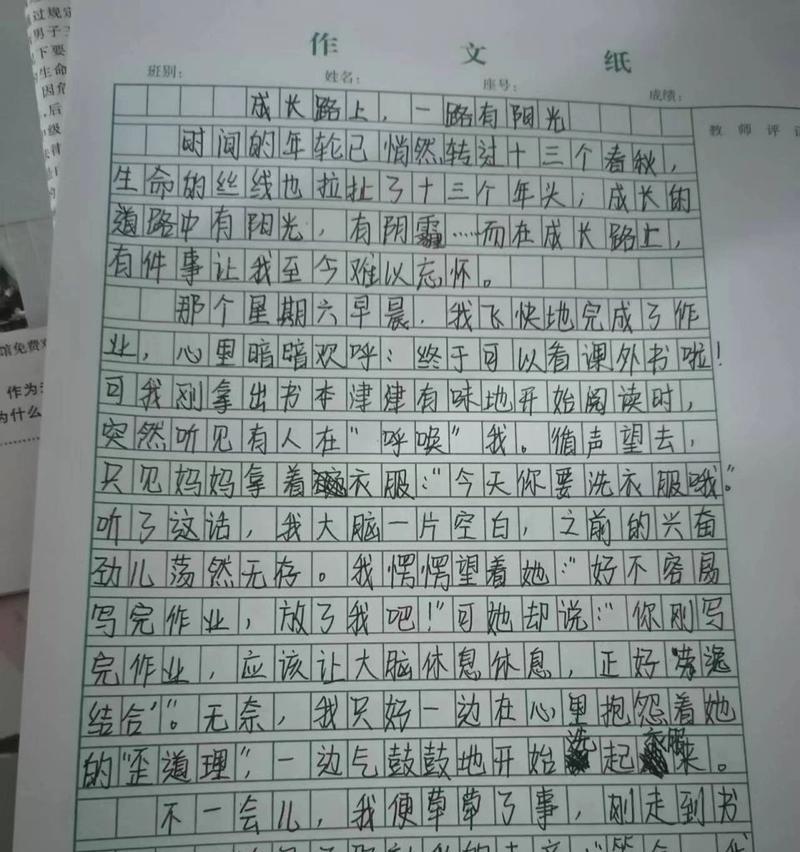 过规定
男子三
下要
生命
因危
后
作文纸
班别：　姓名：　座号：　成绩：
教师评
成长路上，一路有阳光
时间的年轮已悄然转过十三个春秋，
生命的丝线也拉扯了十三个年头；成长的
道路中有阳光，有阴霾……而在成长路上，
有件事让我至今难以忘怀。
那个星期六早晨，我飞快地完成了作
业，心里暗暗欢呼：终于可以看课外书啦！
可我刚拿出书本津津有味地开始阅读时，
突然听见有人在“呼唤”我。循声望去，
只见妈妈拿着衣服：“今天你要洗衣服哦”。
听了这话，我大脑一片空白，之前的兴奋
劲儿荡然无存。我愣愣望着她：“好不容易
写完作业，放了我吧！”可她却说：“你刚写
完作业，应该让大脑休息休息，正好‘劳逸
结合’”。无奈，我只好一边在心里抱怨着她
的“歪道理”，一边气鼓鼓地开始洗起衣服来。
不一会儿，我便草草了事，刚走到书
馆免费对
作为
为什么